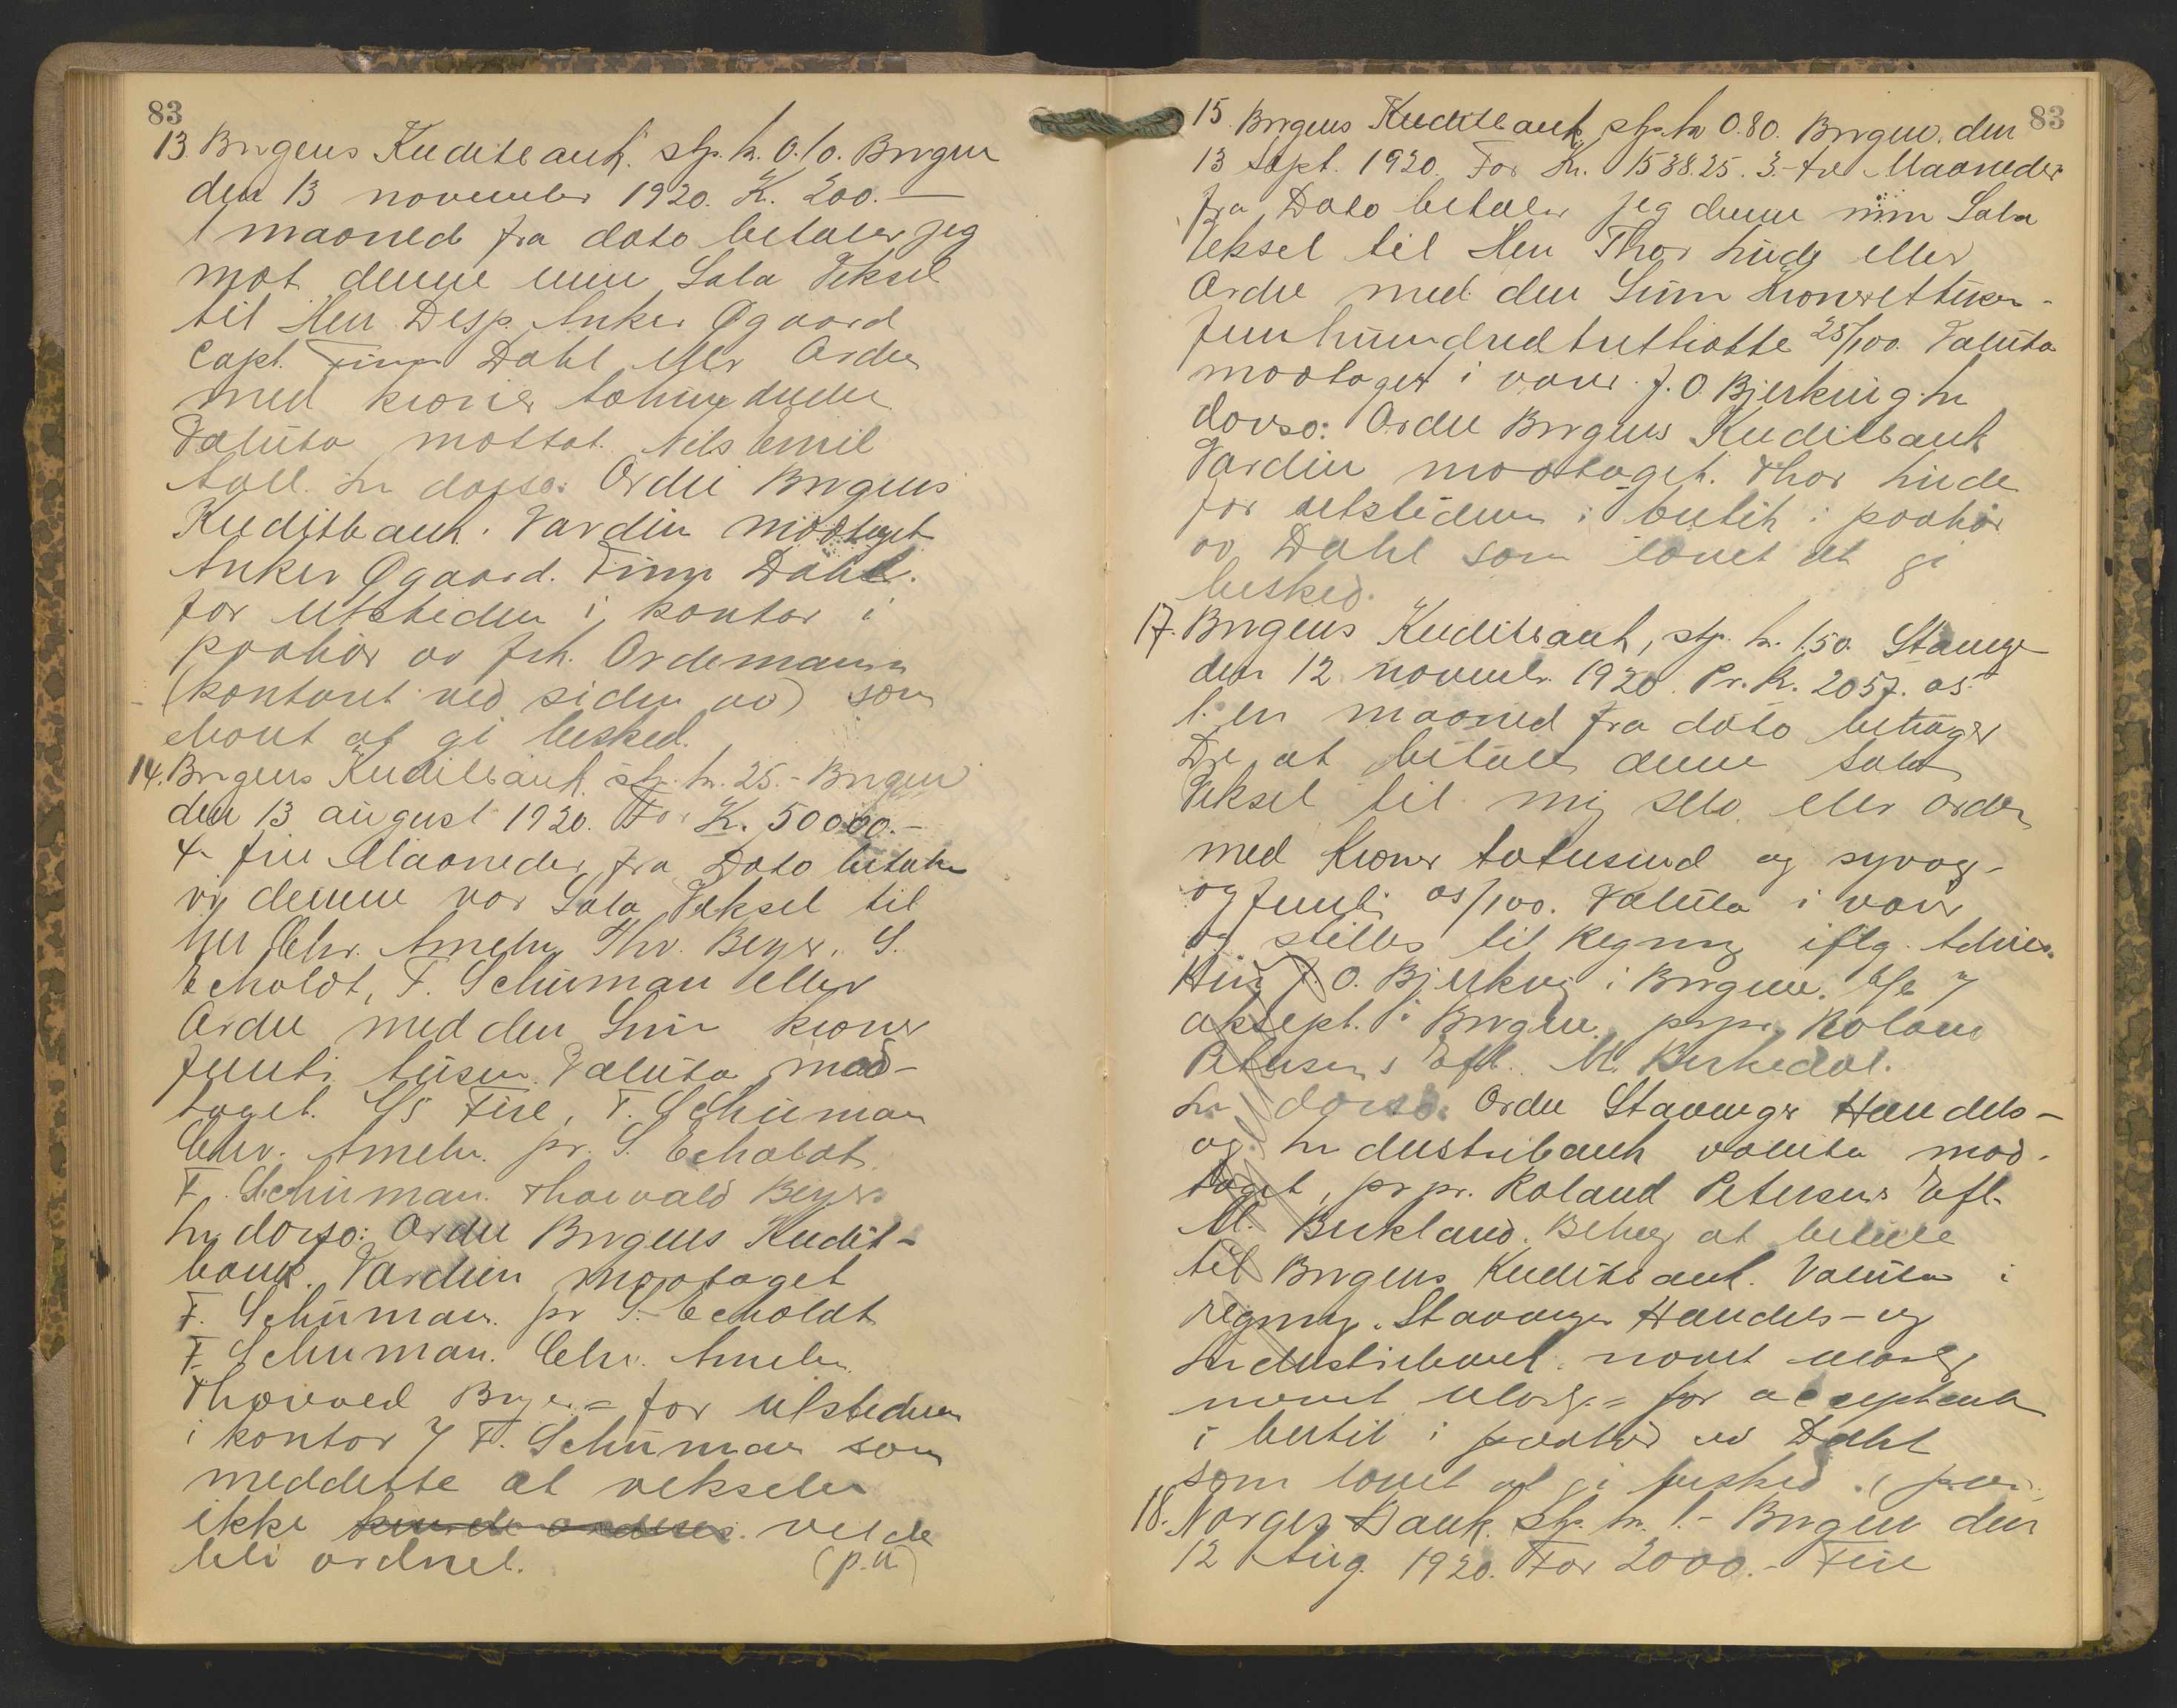 83
13. Bergens Kreditbank. stp. kr. 0.10. Bergen
den 13 november 1920. K. 200.—
1 maaned fra dato betaler jeg
mot denne min Sola Veksel
til Herr Desp. Anker Øgaard
Capt. Finn Dahl eller Ordre
med kroner tohundrede
Valuta mottat. Nils Emil
Aall. In dorso: Ordre Bergens
Kreditbank. Værdien modtaget
Anker Øgaard. Finn Dahl.
for utstederen i kontor i
paahør av frk. Ordemann
(kontoret ved siden av) som
lovet at gi besked.
14. Bergens Kreditbank stp. kr. 25.- Bergen
den 13 august 1920. For K. 50000.-
4 fire Maaneder fra Dato betaler
vi denne vor Sola Veksel til
Chr. Ameln, Thv. Beyer, S.
Echoldt, F. Schuman eller
Ordre med den Sum kroner
femti tusen. Valuta mod-
taget. F. Schuman
Chr. Ameln. pr. S. Echoldt
F. Schuman. Thorvald Beyer
In dorso: Ordre Bergens Kredit-
bank. Værdien modtaget
F. Schuman. pr S. Echoldt
F. Schuman. Chr. Ameln.
Thorvald Beyer = for utstederen
i kontor F. Schuman som
meddelte at vekselen
ikke vilde
bli ordnet. (p.u.)
83
15. Bergens Kreditbank, stp. kr 0.80. Bergen, den
13 Sept. 1920. For Kr. 1538.25. 3.- tre Maaneder
fra Dato betaler jeg denne min Sola
Veksel til Herr Thor Lude eller
Ordre med den Sum Kroner ettusen-
femhundredtrettiotte 25/100. Valuta
modtaget i varer. J. O. Bjerkvig. In
dorso: Ordre Bergens Kreditbank
Værdien modtaget. Thor Lude
for utstederen i butik i paahør
av Dahl som lovet at gi
besked.
17. Bergens Kreditbank, stp. kr. 1.50. Stavanger
den 12 november 1920. Pr. K. 2057.05
1. en maaned fra dato behager
De at betale denne sola
Veksel til mig selv eller ordre
med Kroner totusind og syvog-
ogfemti 05/100. Valuta i varer
og stilles til Regning iflg. Advis.
Herr J. O. Bjerkvig i Bergen.
aksept. i Bergen. pr pr. Roland
Petersens Eft. M. Birkedal.
In dorso: Ordre Stavanger Handels-
og Industribank valuta mod-
taget, pr pr. Roland Petersens Eft.
M. Birkland. Behag at betale
til Bergens Kreditbank. Valuta i
regning. Stavanger Handels- og
Industribank. navnet ulæselig
navnet ulæselig. = for acceptanten
i butik i paahør av Dahl
som lovet at gi besked.
18. Norges Bank. Stp. kr. 1.- Bergen den
12 Aug. 1920. For 2000.- Fire